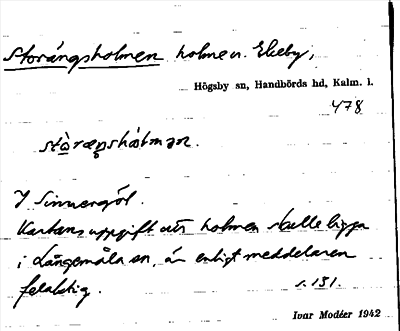 Storängsholmen holme v. Ekeby,
Högsby sn, Handbörds hd, Kalm. l.
478
I Sinnergöl.
Kartans uppgift att holmen skulle ligga
i Långemåla sn, är enligt meddelaren
felaktig. s. 131.
Ivar Modéer 1942